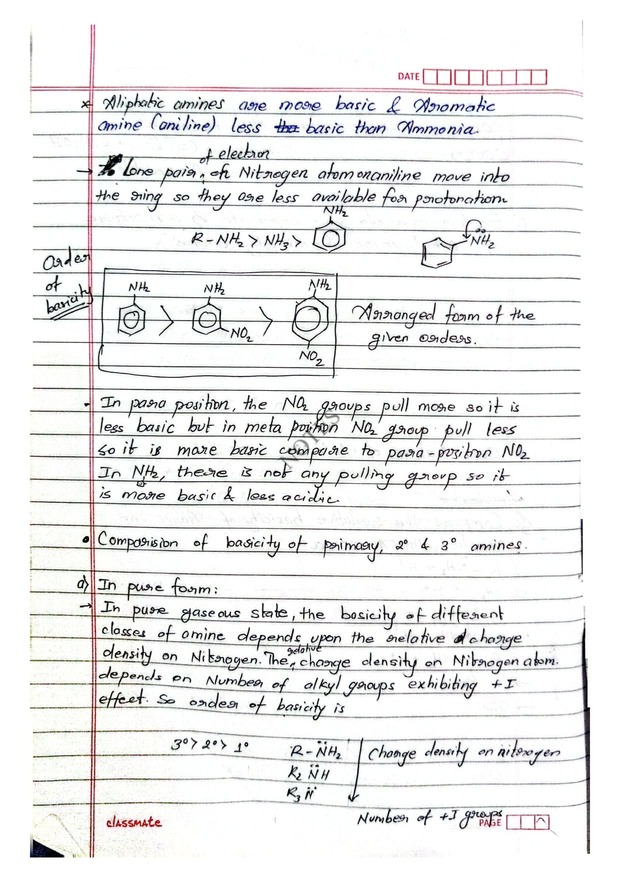 DATE
* Aliphatic amines are more basic & Aromatic
amine (aniline) less basic than Ammonia.
→ Lone pair of electron of Nitrogen atom on aniline move into
the ring so they are less available for protonation
R-NH₂ > NH₃ > NH₂
NH₂
Order of basicity
NH₂ > NH₂ NO₂ > NH₂ NO₂
Arranged form of the
given orders.
- In para position, the NO₂ groups pull more so it is
less basic but in meta position NO₂ group pull less
so it is more basic compare to para-position NO₂
In NH₂, there is not any pulling group so it
is more basic & less acidic.
NOTES
• Comparision of basicity of primary, 2° & 3° amines.
a) In pure form:
→ In pure gaseous state, the basicity of different
classes of amine depends upon the relative charge
density on Nitrogen. The relative charge density on Nitrogen atom
depends on Number of alkyl groups exhibiting +I
effect. So order of basicity is
3° > 2° > 1°
R-N̈H₂
R₂N̈H
R₃N̈
Charge density on nitrogen
Number of +I groups
classmate
PAGE